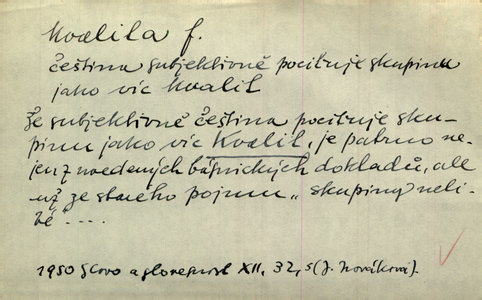 kvalita f.
čeština subjektivně pociťuje skupinu
jako víc kvalit
Že subjektivně čeština pociťuje sku-
pinu jako víc kvalit, je patrno ne-
jen z uvedených básnických dokladů, ale
už ze starého pojmu „skupiny neli-
bé" ....
1950 Slovo a slovesnost XII, 32, 5 (J. Nováková).